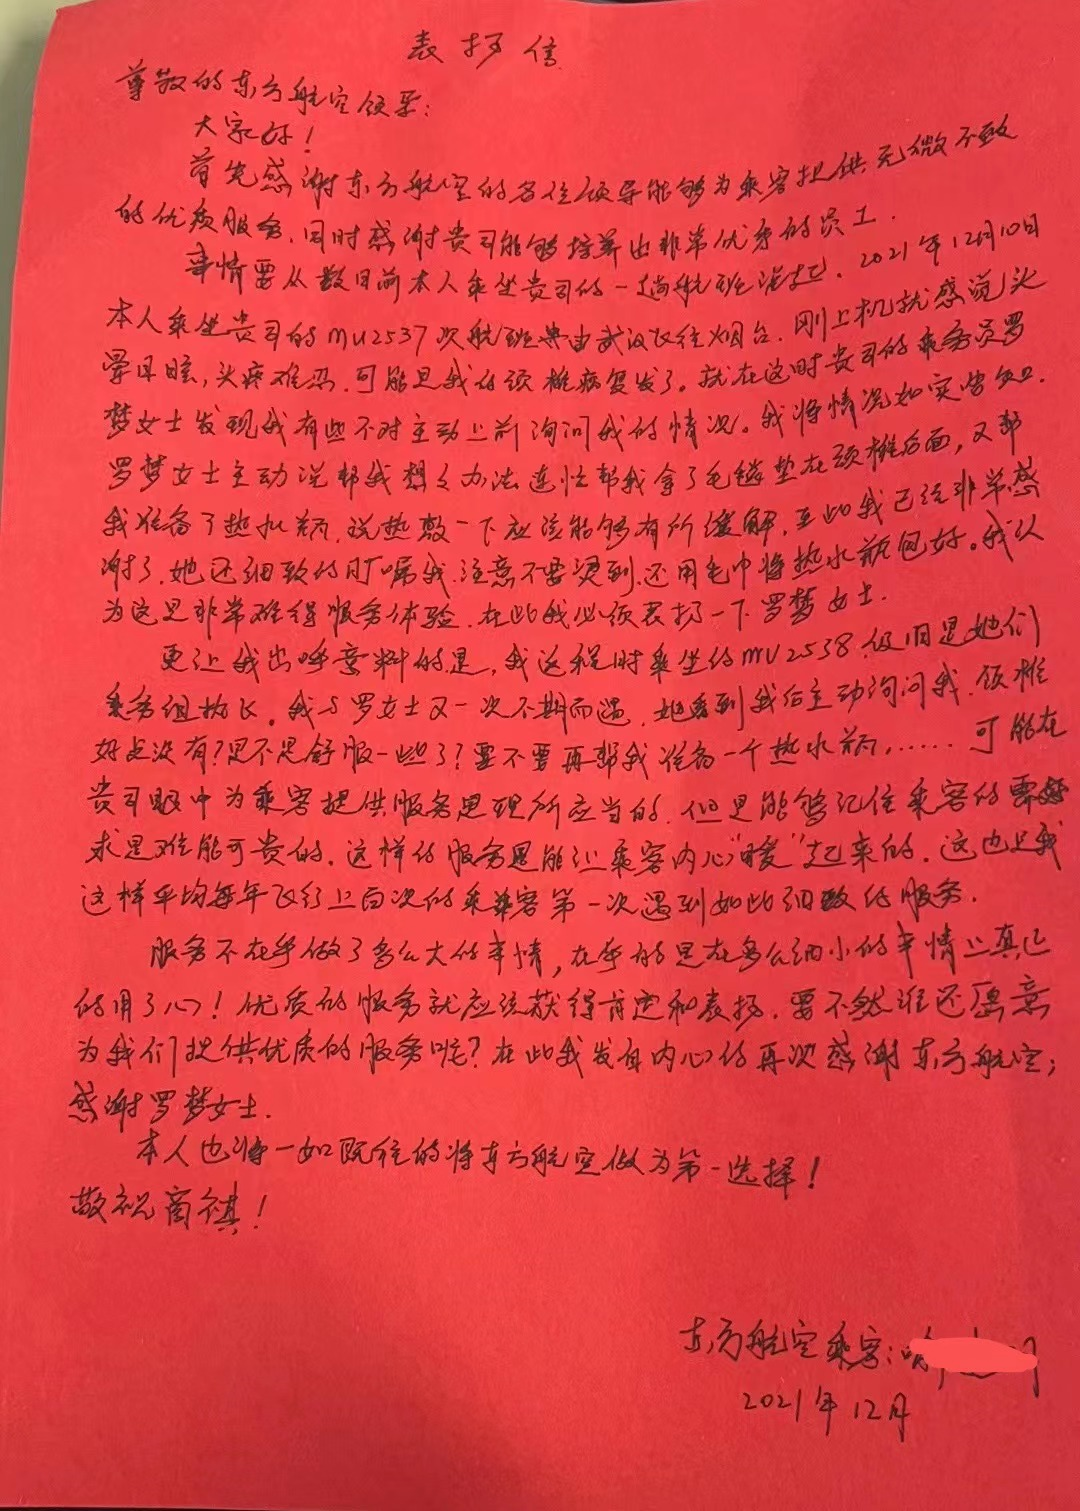 表扬信
尊敬的东方航空领导:
大家好!
首先感谢东方航空的各位领导能够为乘客提供无微不致
的优质服务,同时感谢贵司能够培养出非常优秀的员工.
事情要从数日前本人乘坐贵司的一趟航班说起.2021年12月10日
本人乘坐贵司的MU2537次航班由武汉飞往烟台.刚上机就感觉头
晕目眩,头疼难忍.可能是我的颈椎病复发了。就在这时贵司的乘务员罗
梦女士发现我有些不对主动上前询问我的情况。我将情况如实告知.
罗梦女士主动说帮我想想办法连忙帮我拿了毛毯垫在颈椎后面,又帮
我准备了热水瓶,说热敷一下应该能够有所缓解,至此我已经非常感
谢了.她还细致的叮嘱我注意不要烫到.还用毛巾将热水瓶包好。我认
为这是非常难得服务体验.在此我必须表扬一下罗梦女士.
更让我出呼意料的是,我返程时乘坐的MU2538.仍旧是她们
乘务组执飞。我与罗女士又一次不期而遇.她看到我后主动询问我,颈椎
好点没有?是不是舒服一些了?要不要再帮我准备一个热水瓶,……可能在
贵司眼中为乘客提供服务是理所应当的.但是能够记住乘客的需
求是难能可贵的.这样的服务是能让乘客内心"暖"起来的.这也是我
这样平均每年飞行上百次的乘客第一次遇到如此细致的服务.
服务不在乎做了多么大的事情,在乎的是在多么细小的事情上真正
的用了心!优质的服务就应该获得肯定和表扬.要不然谁还愿意
为我们提供优质的服务呢?在此我发自内心的再次感谢东方航空;
感谢罗梦女士.
本人也将一如既往的将东方航空做为第一选择!
敬祝商祺!
东方航空乘客:
2021年12月